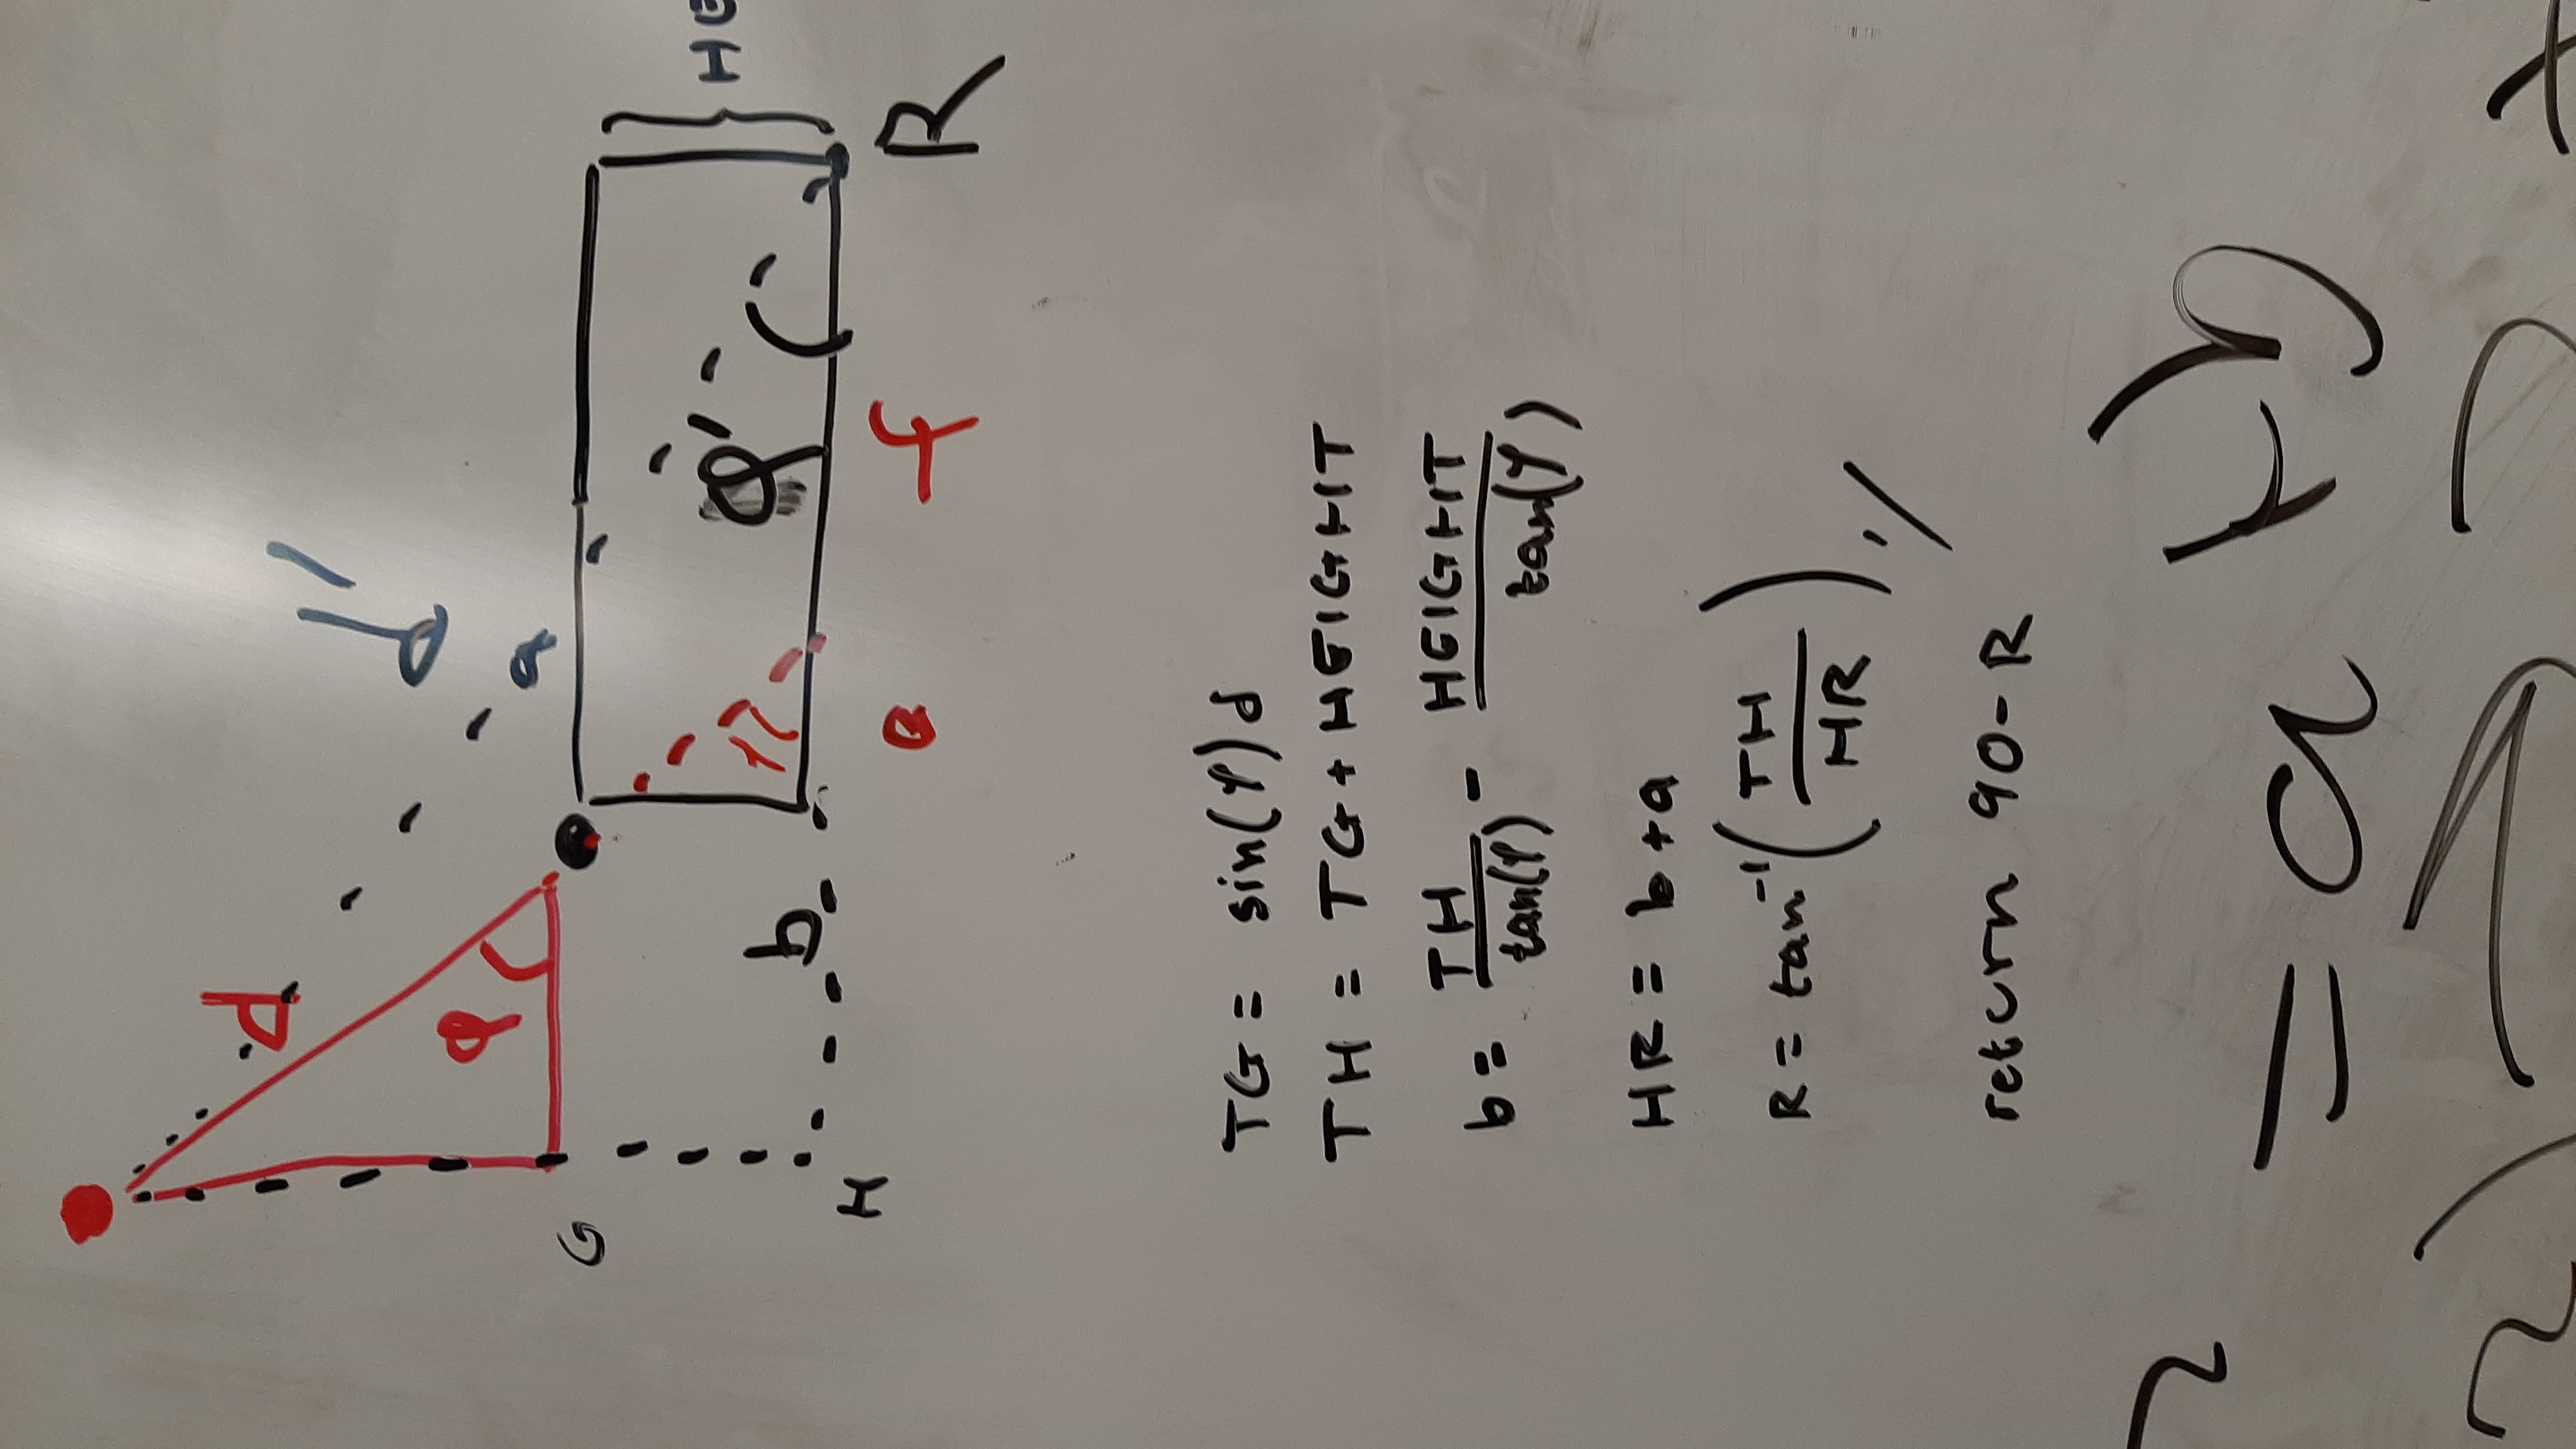 d
d'
φ
a
G
φ'
HE
b
H
e
f
R
TG = sin(φ)d
TH = TG + HEIGHT
b = TH/tan(φ) - HEIGHT/tan(φ)
HR = b + a
R = tan⁻¹(TH/HR)
return 90 - R
= a + b